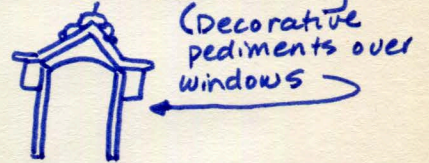 (Decorative
pediments over
windows